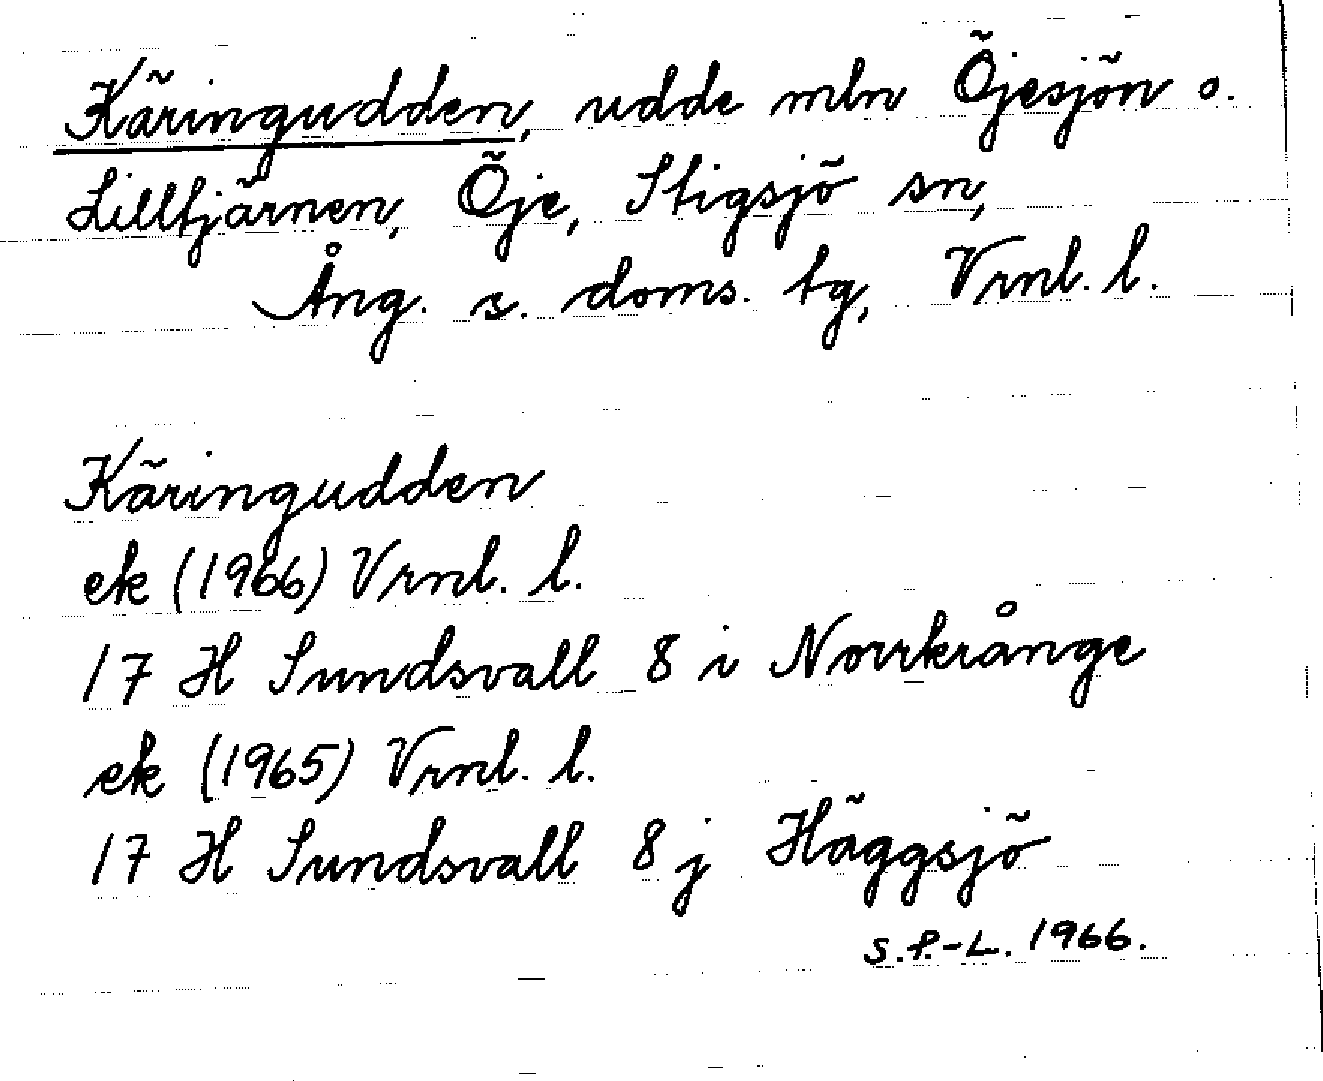 Käringudden, udde mln Öjesjön o.
Lilltjärnen, Öje, Stigsjö sn,
Ång. s. doms. tg, Vrnl. l.
Käringudden
ek (1966) Vrnl. l.
17 H Sundsvall 8 i Norrkrånge
ek (1965) Vrnl. l.
17 H Sundsvall 8 j Häggsjö
S.P.-L. 1966.